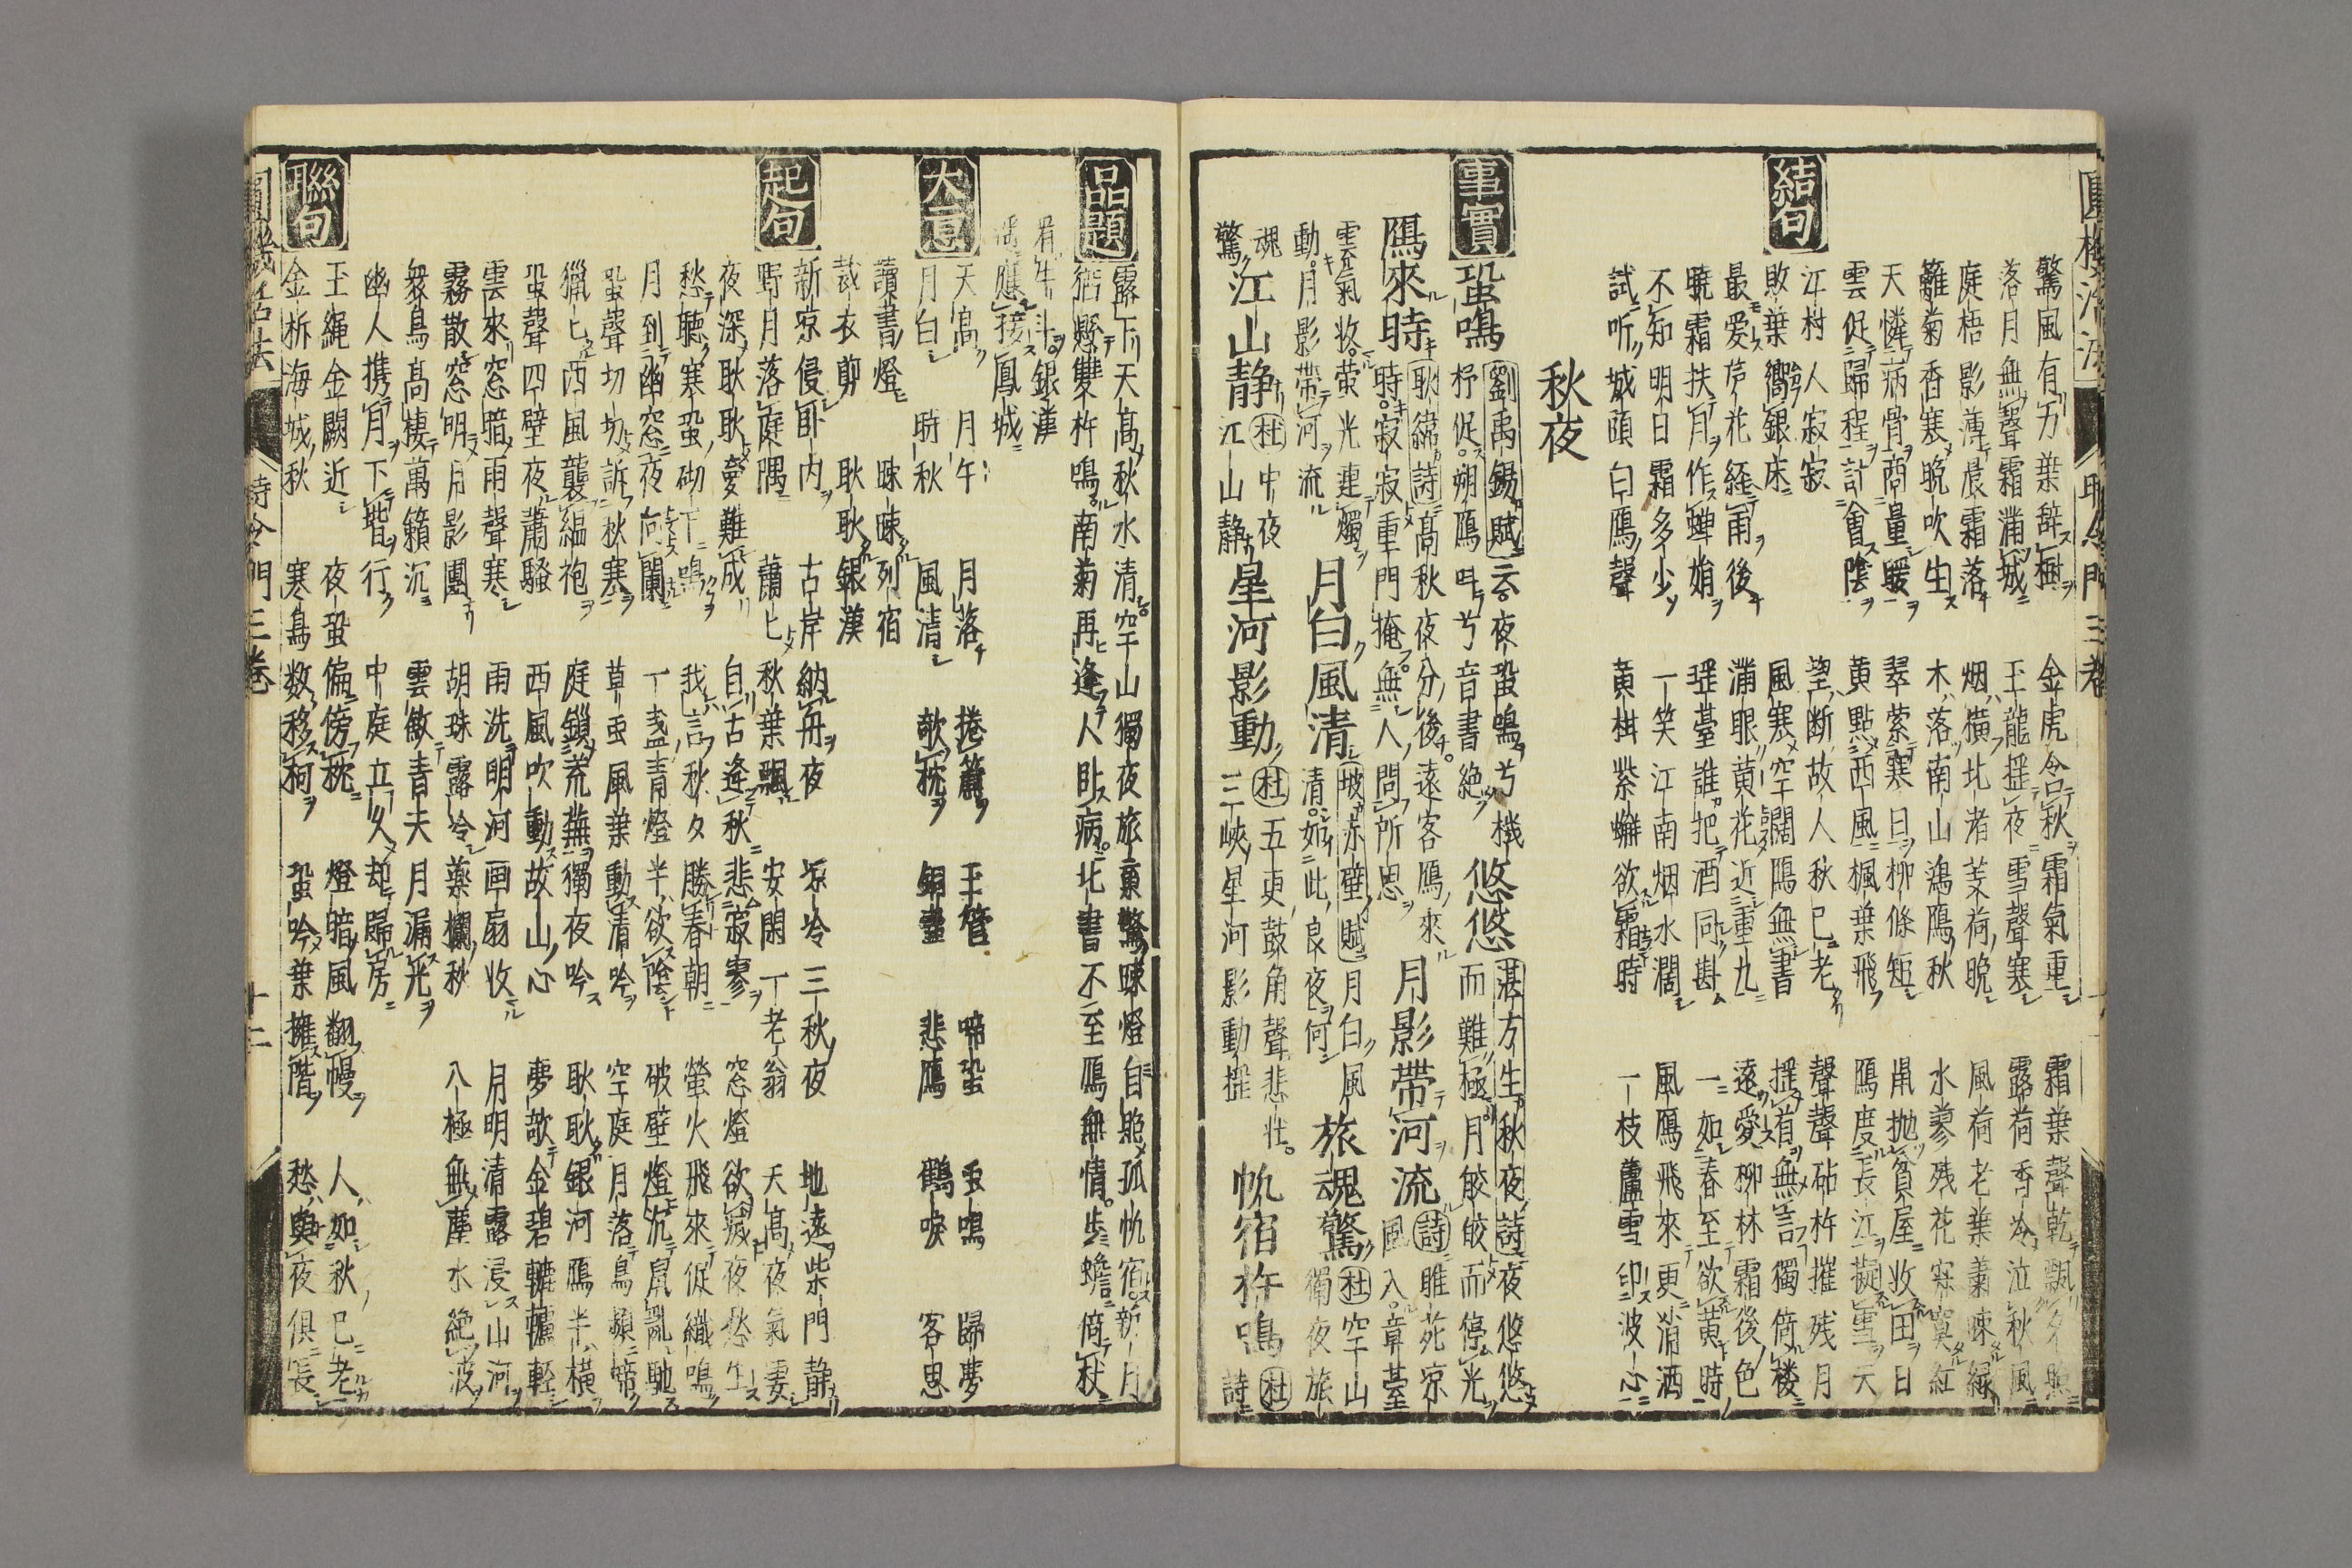 圓機活法 時令門三卷
驚風有万葉辞樹 金虎含秋霜氣重 霜葉聲乾飄夕照
落月無聲霜滿城 玉龍揺夜雪聲寒 露荷香冷泣秋風
庭梧影薄晨霜落 烟橫北渚芰荷晩 風荷老葉蕭疎緑
籬菊香寒晩吹生 木落南山鴻鴈秋 水蓼残花寂寞紅
天憐病骨商量暖 翠縈寒日柳條短 鼎抛貧屋收田日
雲促歸程計會陰 黄點西風楓葉飛 鴈度長江擬雪天
結句
江村人寂寂 望断故人秋已老 聲聲砧杵摧残月
敗葉嚮銀床 風寒空闊鴈無書 揺首無言獨倚楼
最愛芦花経雨後 滿眼黄花近重九 遠愛柳林霜後色
暁霜扶月作蝉娟 瑶臺誰把酒同斟 一如春至欲黄時
不知明日霜多少 一笑江南烟水濶 風鴈飛來更消洒
試听城頭白鴈聲 黄柑紫蠏欲霜時 一枝蘆雪印波心
秋夜
事實
蛩鳴 劉禹錫賦云夜蛩鳴兮機杼促朔鴈呌兮音書絶 悠悠 湛方生秋夜詩夜悠悠而難極月皎皎而停光
鴈來時 耿緯詩高秋夜分後遠客鴈來時寂寂重門掩無人問所思 月影帶河流 詩睢苑凉風入章臺雲氣收螢光連燭動月影帶河流
月白風清 坡赤壁賦月白風清如此良夜何 旅魂驚 杜空山獨夜旅魂驚
江山静 杜中夜江山静 星河影動 杜五更鼓角聲悲壯三峡星河影動揺 帆宿杵鳴 杜詩
品題
露下天髙秋水清空山獨夜旅䰟驚疎燈自照孤帆宿新月
猶懸雙杵鳴南菊再逢人卧病北書不至鴈無情歩蟾倚杖
看牛斗銀漢
遥應接鳳城
大意
天髙 月午 月落 捲簾 玉管 啼蛩 虫鳴 歸夢
月白 時秋 風清 欹枕 銀畫 悲鴈 鶴唳 客思
讀書燈 疎疎列宿
裁衣剪 耿耿銀漢
起句
新凉侵卧内 古岸納舟夜 凉冷三秋夜 地遠柴門静
野月落庭隅 蕭匕秋葉飄 安閑一老翁 天髙夜氣凄
夜深耿耿夢難成 自古逢秋悲寂寥 窓燈欲滅夜愁生
愁聽寒蛩砌下鳴 我言秋夕勝春朝 螢火飛來促織鳴
月到幽窓夜向闌 一盞青燈半欲陰 破壁燈沉鼠亂馳
蛩聲切切訴秋寒 草虫風葉動清吟 空庭月落鳥頻啼
獵匕西風襲緼袍 庭鎖荒蕪獨夜吟 耿耿銀河鴈半橫
蛩聲四壁夜蕭騷 西風吹動故山心 夢欹金碧轆轤輕
雲來窓暗雨聲寒 雨洗明河画扇收 月明清露浸山河
霧散窓明月影團 胡珠露冷藥欄秋 八極無塵水絶波
衆鳥髙棲萬籟沉 雲㪚青天月漏光
幽人携月下堦行 中庭立久却歸房
聯句
玉繩金闕近 夜蛩偏傍枕 燈暗風翻幔 人如秋已老
金柝海城秋 寒鳥数移柯 蛩吟葉擁階 愁與夜俱長
圓機活法 時令門三卷 十二